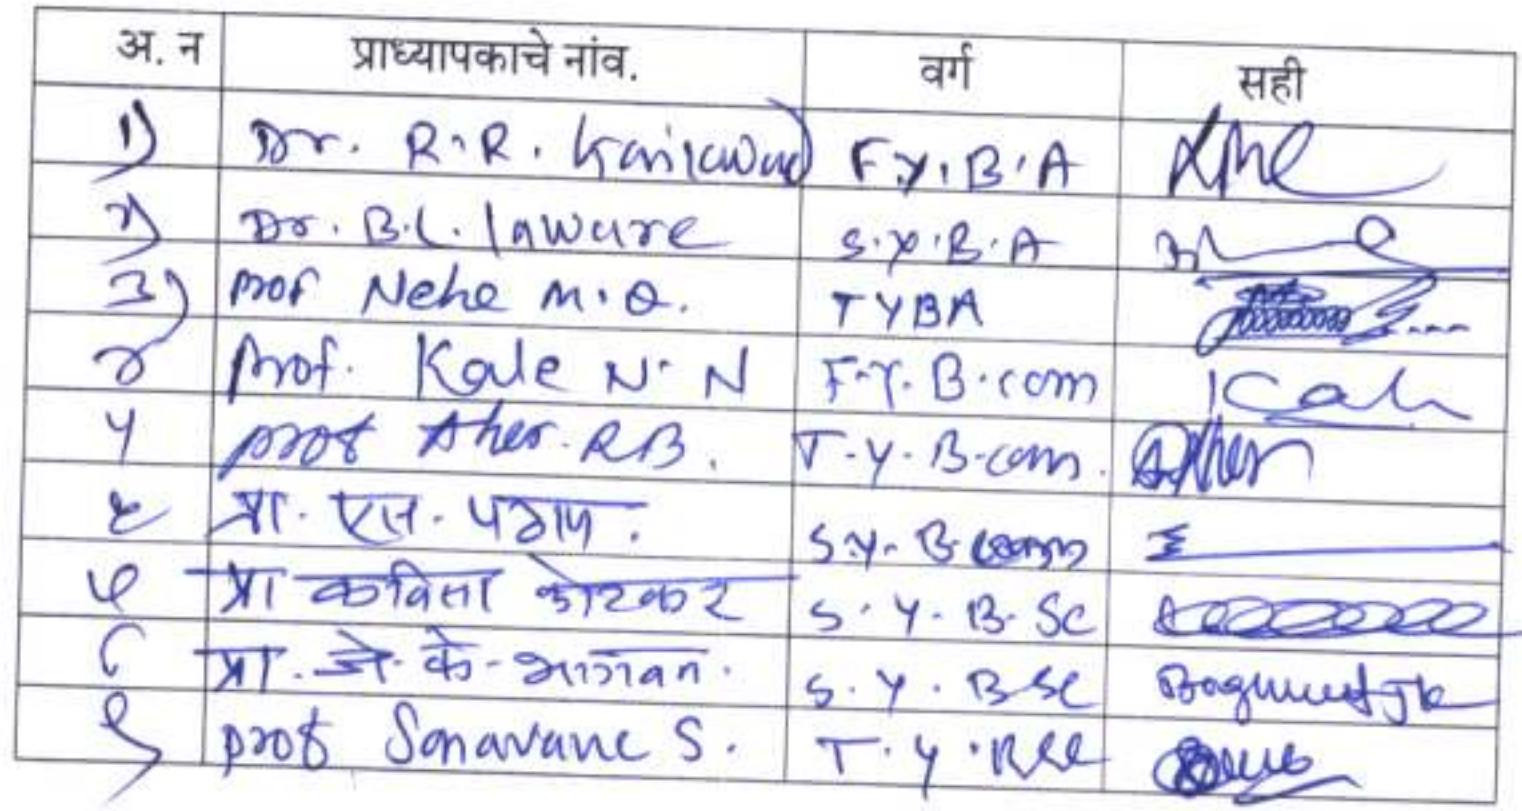 अ. न प्राध्यापकाचे नांव. वर्ग सही
१) Dr. R.R. F.Y.B.A
२) Dr. B.L. Laware S.Y.B.A
३) Prof Nehe M.Q. TYBA
४ Prof. Kale N.N F.Y.B.com Kale
५ Prof Aher. R.B. T.Y.B.com. Aher
६ प्रा. एस. पठाण. S.Y.B.comm
७ प्रा कविता कोटकर S.Y.B.Sc
८ प्रा. जे. के. भागवत. S.Y.BSc
९ Prof Sonavane S. T.Y.BSc